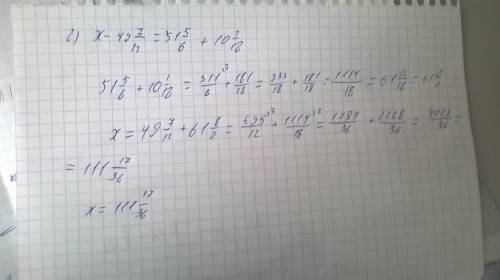 г) x - 49 7/12 = 51 5/6 + 10 1/18
51 5/6 + 10 1/18 = 311/6 + 181/18 = 933/18 + 181/18 = 1114/18 = 61 16/18 = 61 8/9
x = 49 7/12 + 61 8/9 = 595/12 + 1114/18 = 1785/36 + 2228/36 = 4013/36 =
= 111 17/36
x = 111 17/36